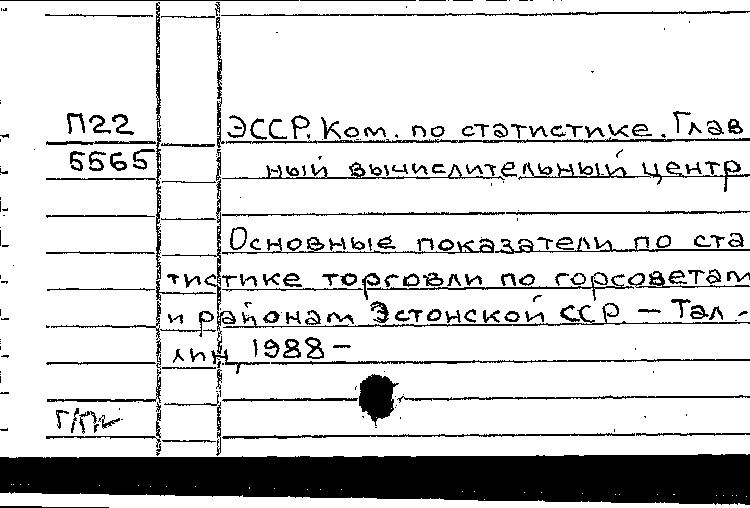 П22 ЭССР. Ком. по статистике. Глав
5565 ный вычислительный центр
Основные показатели по ста
тистике торговли по горсоветам
и районам Эстонской ССР. — Тал-
лин, 1988 —